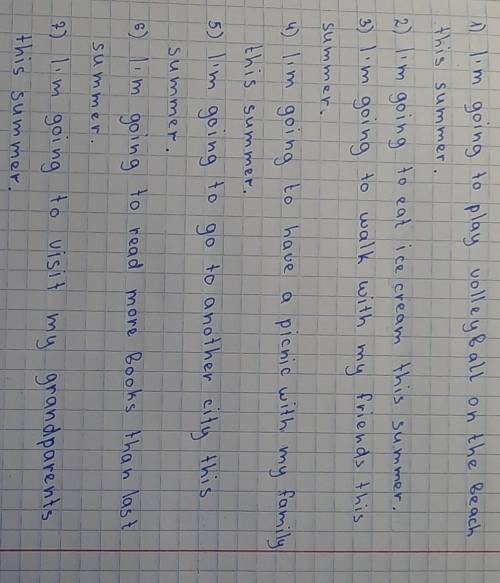 1) I'm going to play volleyball on the beach
this summer.
2) I'm going to eat ice cream this summer.
3) I'm going to walk with my friends this
summer.
4) I'm going to have a picnic with my family
this summer.
5) I'm going to go to another city this
summer.
6) I'm going to read more books than last
summer.
7) I'm going to visit my grandparents
this summer.